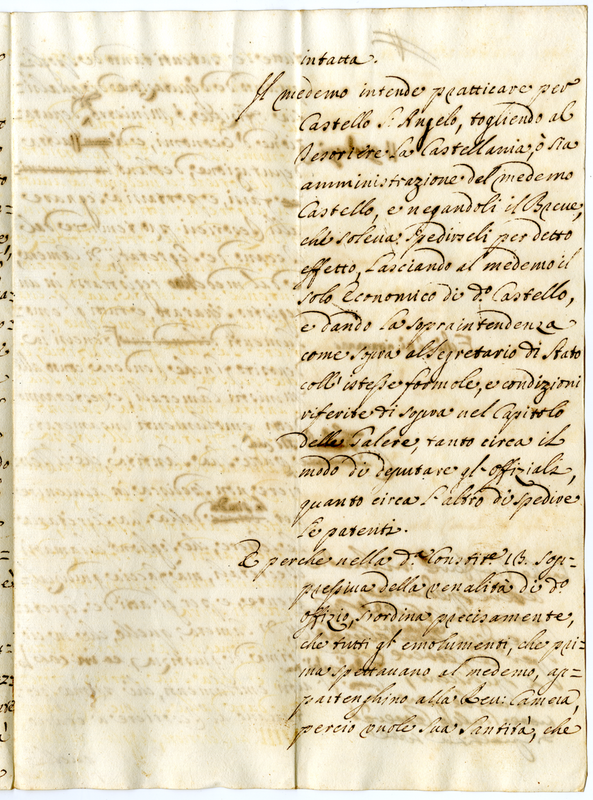 intatta.
Il medemo intende pratticare per
Castello S. Angelo, togliendo al
Tesoriere la Castellania, ò sia
amministrazione del medemo
Castello, e negandoli il Breve,
che soleva spedirseli per detto
effetto, lasciando al medemo il
solo Economico di do. Castello,
e dando la sopraintendenza
come sopra al Segretario di Stato
coll' istesse formole, e condizioni
riferite di sopra nel Capitolo
delle Galere, tanto circa il
modo di deputare gl' offiziali,
quanto circa l'altro di spedire
le patenti.
E perche nella da. Constite. 13. sop=
pressiva della venalità di do.
offizio, s'ordina precisamente,
che tutti gl' emolumenti, che pri=
ma spettavano al medemo, ap=
partenghino alla Rev: Camera,
perciò vuole Sua Santità, che